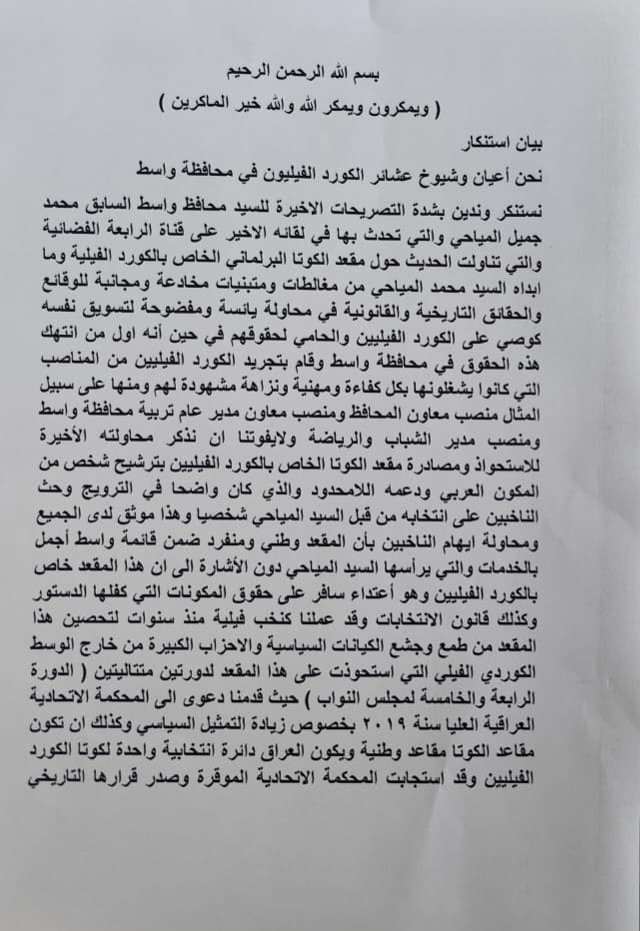 بسم الله الرحمن الرحيم
( ويمكرون ويمكر الله والله خير الماكرين )
بيان استنكار
نحن أعيان وشيوخ عشائر الكورد الفيليون في محافظة واسط
نستنكر وندين بشدة التصريحات الاخيرة للسيد محافظ واسط السابق محمد
جميل المياحي والتي تحدث بها في لقائه الاخير على قناة الرابعة الفضائية
والتي تناولت الحديث حول مقعد الكوتا البرلماني الخاص بالكورد الفيلية وما
ابداه السيد محمد المياحي من مغالطات ومتبنيات مخادعة ومجانبة للوقائع
والحقائق التاريخية والقانونية في محاولة يائسة ومفضوحة لتسويق نفسه
كوصي على الكورد الفيليين والحامي لحقوقهم في حين أنه اول من انتهك
هذه الحقوق في محافظة واسط وقام بتجريد الكورد الفيليين من المناصب
التي كانوا يشغلونها بكل كفاءة ومهنية ونزاهة مشهودة لهم ومنها على سبيل
المثال منصب معاون المحافظ ومنصب معاون مدير عام تربية محافظة واسط
ومنصب مدير الشباب والرياضة ولايفوتنا ان نذكر محاولته الأخيرة
للاستحواذ ومصادرة مقعد الكوتا الخاص بالكورد الفيليين بترشيح شخص من
المكون العربي ودعمه اللامحدود والذي كان واضحا في الترويج وحث
الناخبين على انتخابه من قبل السيد المياحي شخصيا وهذا موثق لدى الجميع
ومحاولة ايهام الناخبين بأن المقعد وطني ومنفرد ضمن قائمة واسط أجمل
بالخدمات والتي يرأسها السيد المياحي دون الأشارة الى ان هذا المقعد خاص
بالكورد الفيليين وهو أعتداء سافر على حقوق المكونات التي كفلها الدستور
وكذلك قانون الانتخابات وقد عملنا كنخب فيلية منذ سنوات لتحصين هذا
المقعد من طمع وجشع الكيانات السياسية والاحزاب الكبيرة من خارج الوسط
الكوردي الفيلي التي استحوذت على هذا المقعد لدورتين متتاليتين ( الدورة
الرابعة والخامسة لمجلس النواب ) حيث قدمنا دعوى الى المحكمة الاتحادية
العراقية العليا سنة ٢٠١٩ بخصوص زيادة التمثيل السياسي وكذلك ان تكون
مقاعد الكوتا مقاعد وطنية ويكون العراق دائرة انتخابية واحدة لكوتا الكورد
الفيليين وقد استجابت المحكمة الاتحادية الموقرة وصدر قرارها التاريخي